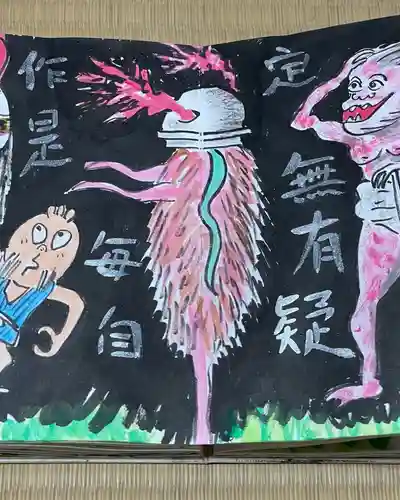 定無有疑
毎自
作是